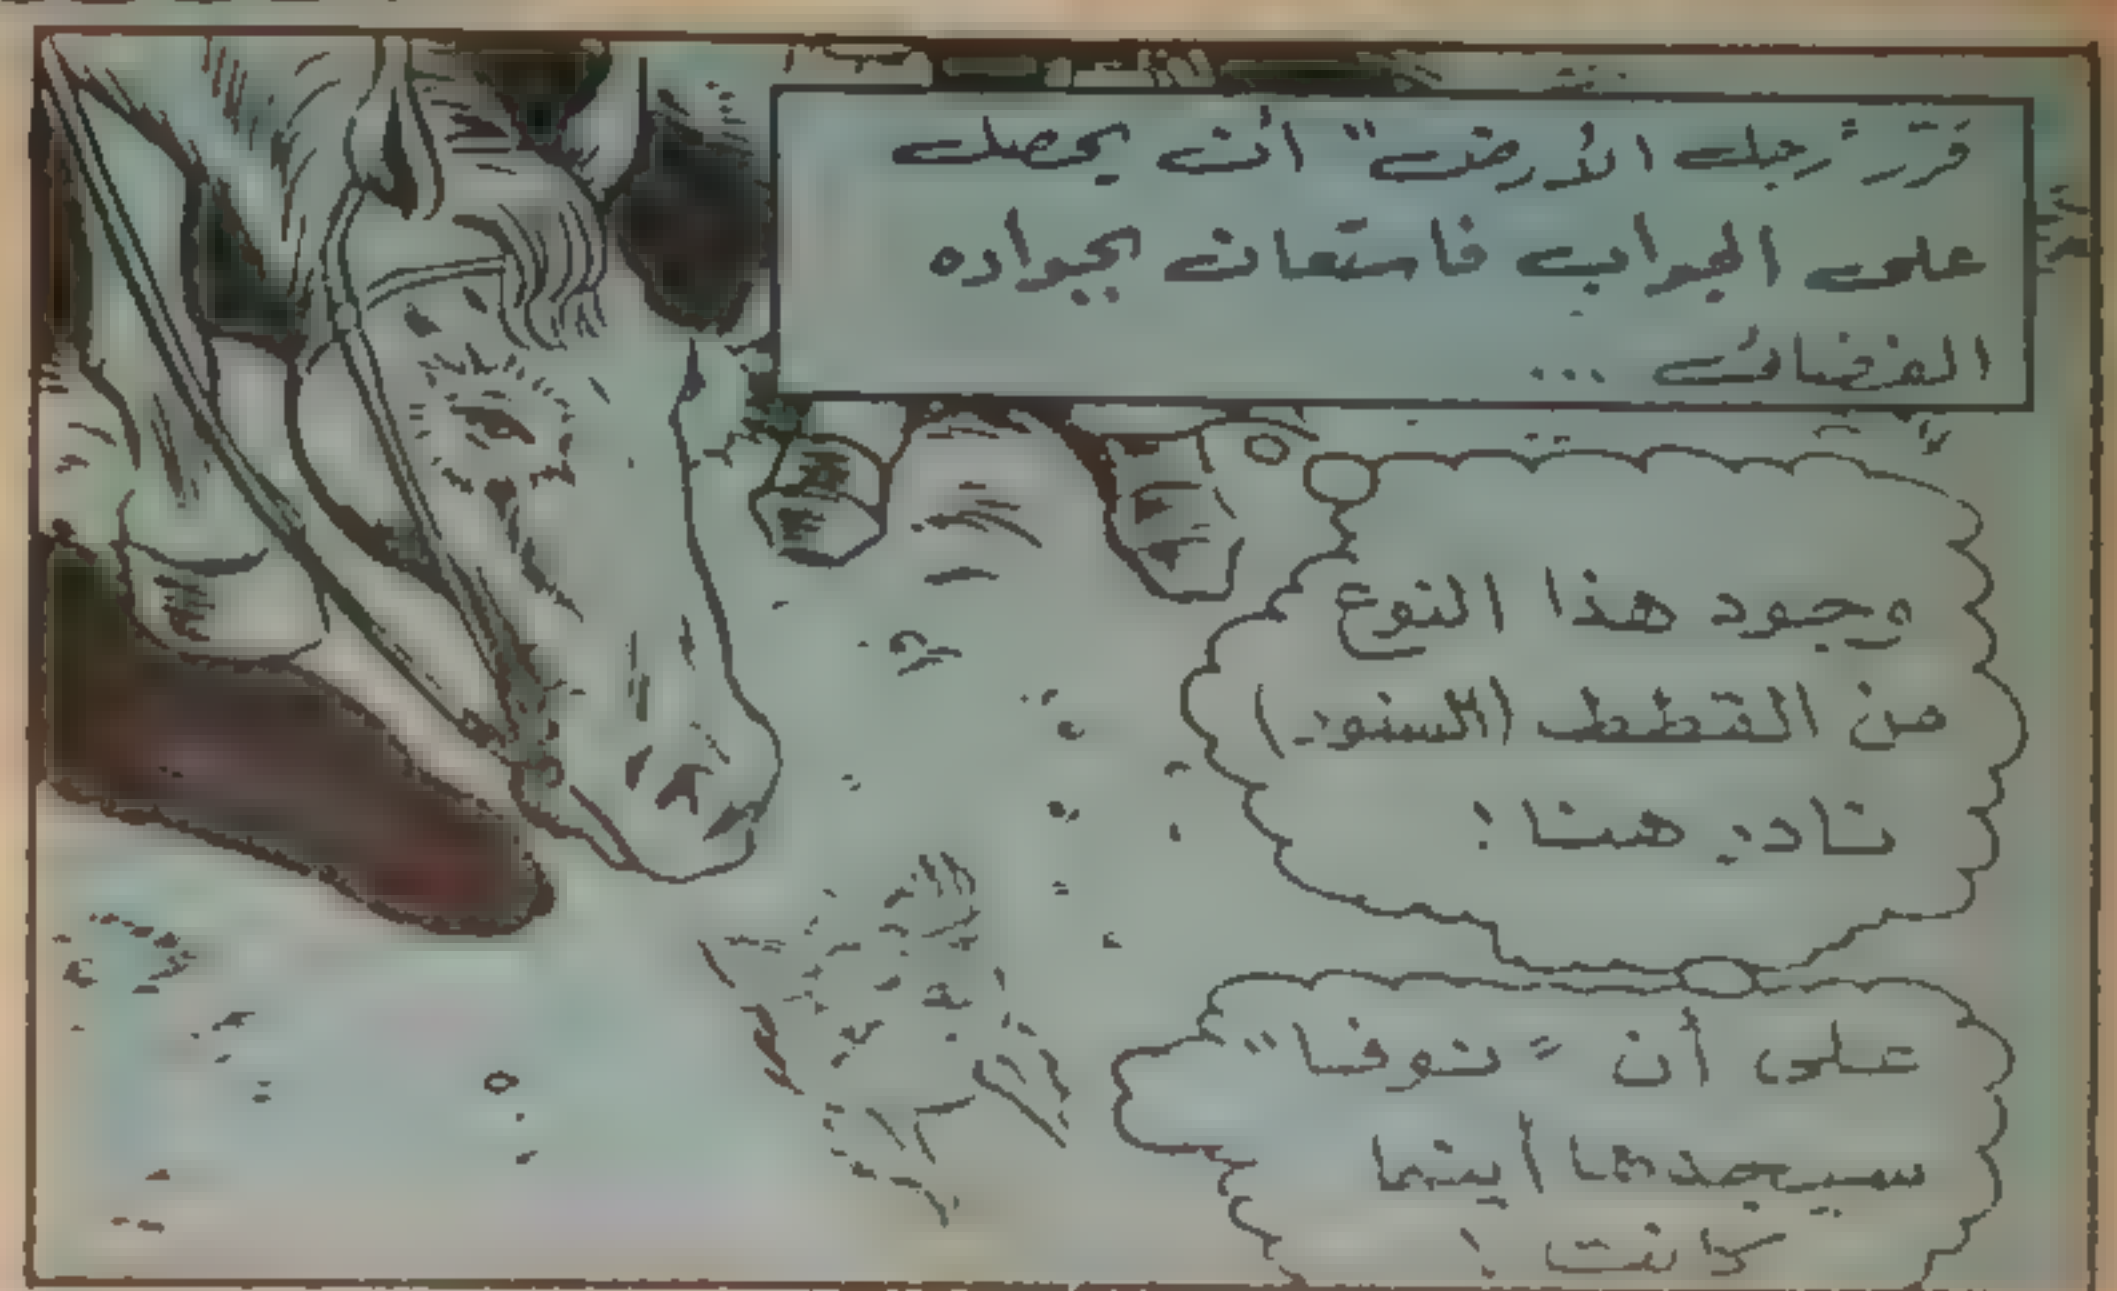 قرّر "رجل الأرض" أن يحصل
على الجواب فاستعان بجواده
الفضائي ...
وجود هذا النوع
من القطط (السنور)
نادر هنا !
على أن "نوفا"
سيجدها أينما
كانت !